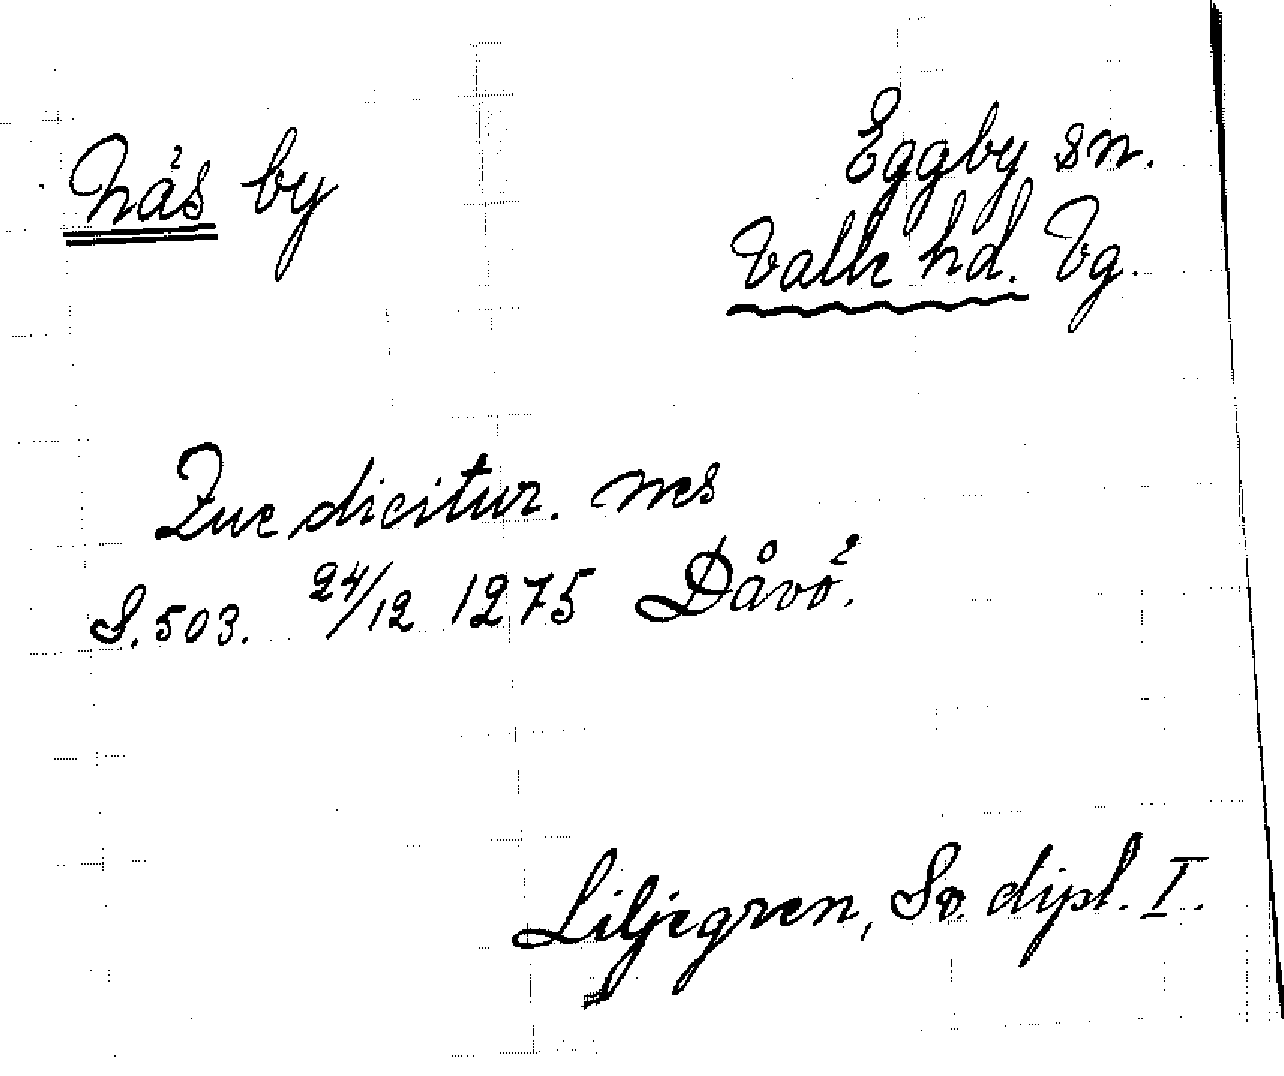 Näs by
Eggby sn.
Valle hd. Vg.
Que dicitur. nes
S. 503. 24/12 1275 Dåvö.
Liljegren, Sv. dipl. I.